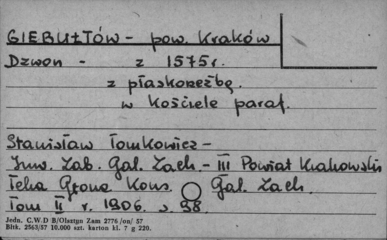 GIEBUŁTÓW - pow. Kraków
Dzwon - z 1575r.
z płaskorzeźbą.
w kościele paraf.
Stanisław Tomkowicz -
Inw. Zab. Gal. Zach. - III Powiat Krakowski
Teka Grona Kons. Gal. Zach.
Tom II r. 1906. s. 98.
Jedn. C.W.D B/Olsztyn Zam 2776 /on/ 57
Bltk. 2563/57 10.000 szt. karton kl. 7 g 220.